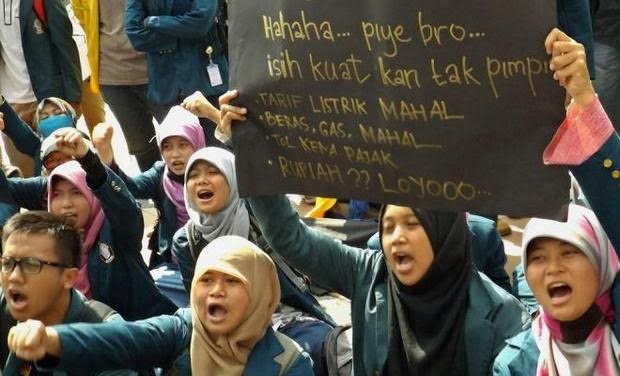 Hahaha... piye bro...
isih kuat kan tak pimpi
• TARIF LISTRIK MAHAL
• BERAS, GAS, MAHAL
• TOL KENA PAJAK
• RUPIAH ?? LOYOOO...